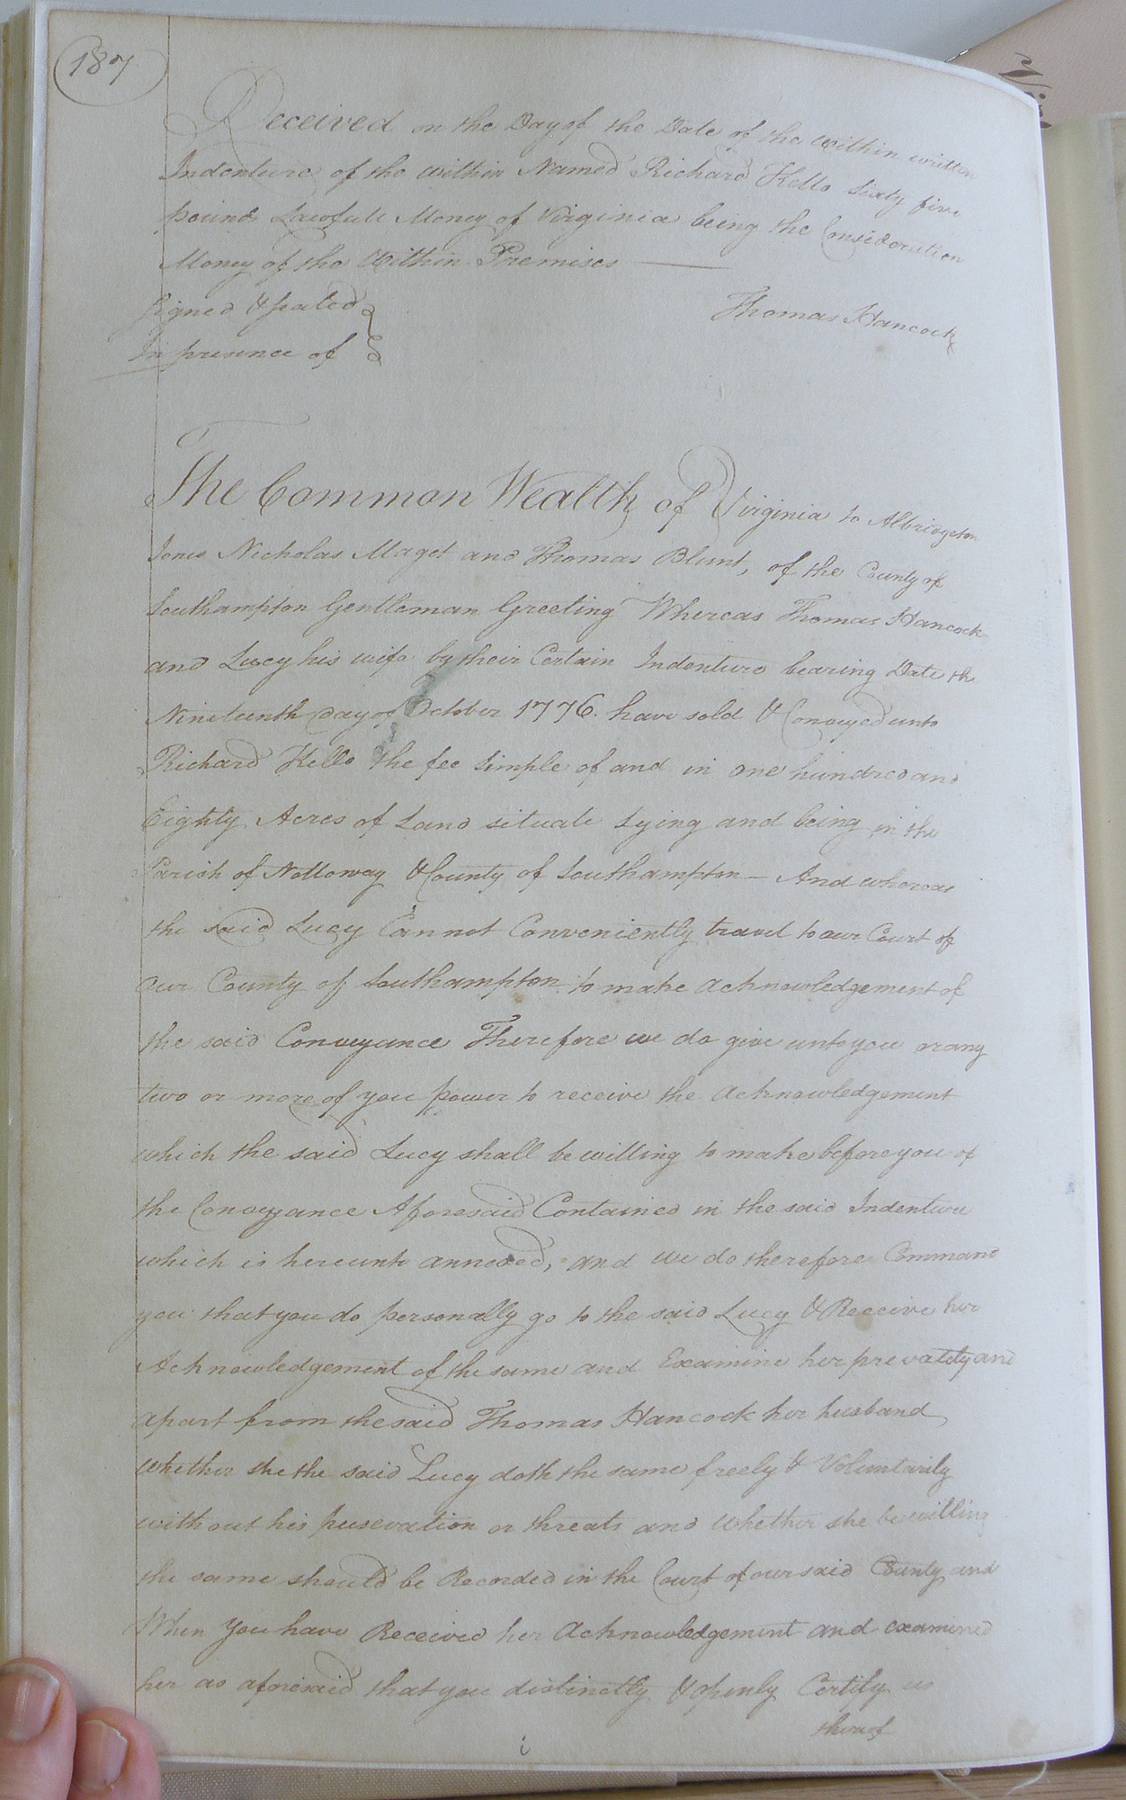 187
Received on the Day of the Date of the within written
Indenture of the within Named Richard Kello Sixty five
pounds Lawfull Money of Virginia being the Consideration
Money of the Within Premises
Signed & sealed
In presence of
Thomas Hancock
The Common Wealth of Virginia to Albridgeton
Jones Nicholas Maget and Thomas Blunt, of the County of
Southampton Gentleman Greeting Whereas Thomas Hancock
and Lucy his wife by their Certain Indenture bearing Date the
Nineteenth Day of October 1776. have sold & Conveyed unto
Richard Kello the fee simple of and in one hundred and
Eighty Acres of Land situate Lying and being in the
Parish of Nottoway & County of Southampton — And whereas
the said Lucy Cannot Conveniently travel to our Court of
our County of Southampton to make acknowledgement of
the said Conveyance Therefore we do give unto you or any
two or more of you power to receive the acknowledgement
which the said Lucy shall be willing to make before you of
the Conveyance Aforesaid Contained in the said Indenture
which is hereunto annexed, and we do therefore Command
you that you do personally go to the said Lucy & Receive her
Acknowledgement of the same and Examine her privately and
apart from the said Thomas Hancock her husband
whether she the said Lucy doth the same freely & Voluntarily
without his or threats and whether she be willing
the same should be Recorded in the Court of our said County and
When you have Received her Acknowledgement and examined
her as aforesaid that you distinctly & openly Certify us
thereof